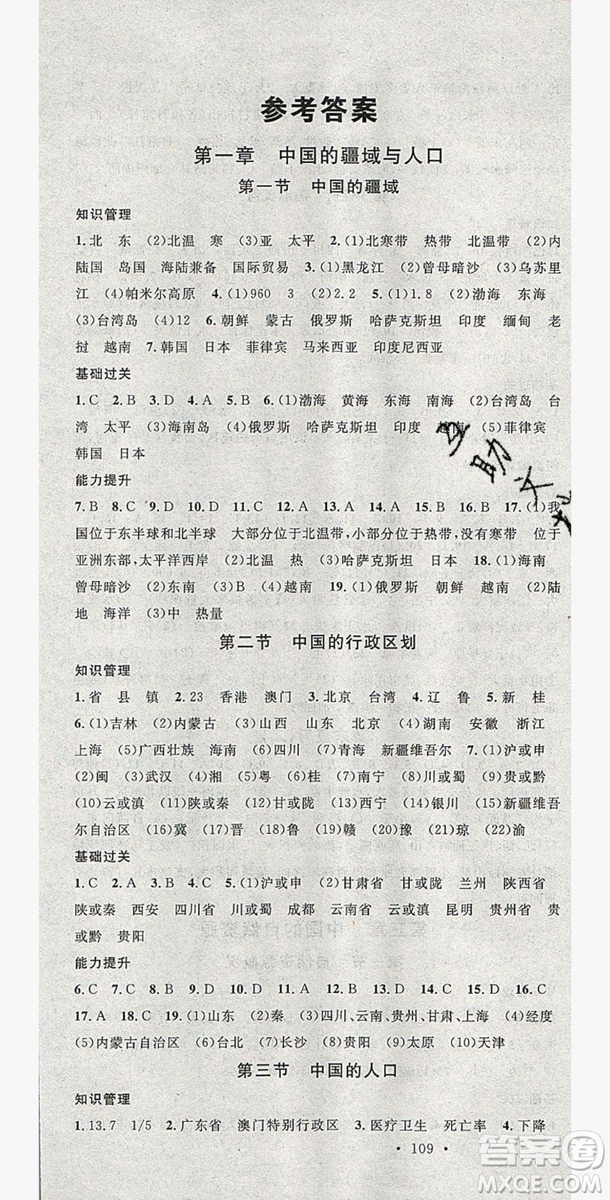 参考答案
第一章 中国的疆域与人口
第一节 中国的疆域
知识管理
1.北 东 (2)北温 寒 (3)亚 太平 2.(1)北寒带 热带 北温带 (2)内
陆国 岛国 海陆兼备 国际贸易 3.(1)黑龙江 (2)曾母暗沙 (3)乌苏里
江 (4)帕米尔高原 4.(1)960 3 (2)2.2 5.(1)渤海 (2)黄海 东海
(3)台湾岛 (4)12 6.朝鲜 蒙古 俄罗斯 哈萨克斯坦 印度 缅甸 老
挝 越南 7.韩国 日本 菲律宾 马来西亚 印度尼西亚
基础过关
1.C 2.B 3.D 4.A 5.B 6.(1)渤海 黄海 东海 南海 (2)台湾岛 台
湾 太平 (3)海南岛 (4)俄罗斯 哈萨克斯坦 印度 越南 (5)菲律宾
韩国 日本
能力提升
7.B 8.C 9.D 10.D 11.C 12.C 13.B 14.D 15.D 16.B 17.(1)我
国位于东半球和北半球 大部分位于北温带,小部分位于热带,没有寒带 位于
亚洲东部,太平洋西岸 (2)北温 (3)哈萨克斯坦 日本 18.(1)南海
曾母暗沙 (2)东南 (3)B (4)越南 19.(1)俄罗斯 朝鲜 越南 (2)陆
地 海洋 (3)中 热量
第二节 中国的行政区划
知识管理
1.省 县 镇 2.23 香港 澳门 3.北京 台湾 4.辽 鲁 5.新 桂
6.(1)吉林 (2)内蒙古 (3)山西 山东 北京 (4)湖南 安徽 浙江
上海 (5)广西壮族 海南 (6)四川 (7)青海 新疆维吾尔 7.(1)沪或申
(2)闽 (3)武汉 (4)湘 (5)粤 (6)桂 (7)南宁 (8)川或蜀 (9)贵或黔
(10)云或滇 (11)陕或秦 (12)甘或陇 (13)西宁 (14)银川 (15)新疆维吾
尔自治区 (16)冀 (17)晋 (18)鲁 (19)赣 (20)豫 (21)琼 (22)渝
基础过关
1.C 2.A 3.B 4.B 5.(1)沪或申 (2)甘肃省 甘或陇 兰州 陕西省
陕或秦 西安 四川省 川或蜀 成都 云南省 云或滇 昆明 贵州省 贵
或黔 贵阳
能力提升
6.C 7.D 8.C 9.B 10.D 11.D 12.A 13.B 14.D 15.C 16.C
17.A 18.C 19.(1)山东 (2)秦 (3)四川、云南、贵州、甘肃 (4)经度
(5)内蒙古自治区 (6)台北 (7)长春 (8)贵阳 (9)太原 (10)天津
第三节 中国的人口
知识管理
1.13.7 1/5 2.广东省 澳门特别行政区 3.医疗卫生 死亡率 4.下降
• 109 •
答案圈
MXQE.COM